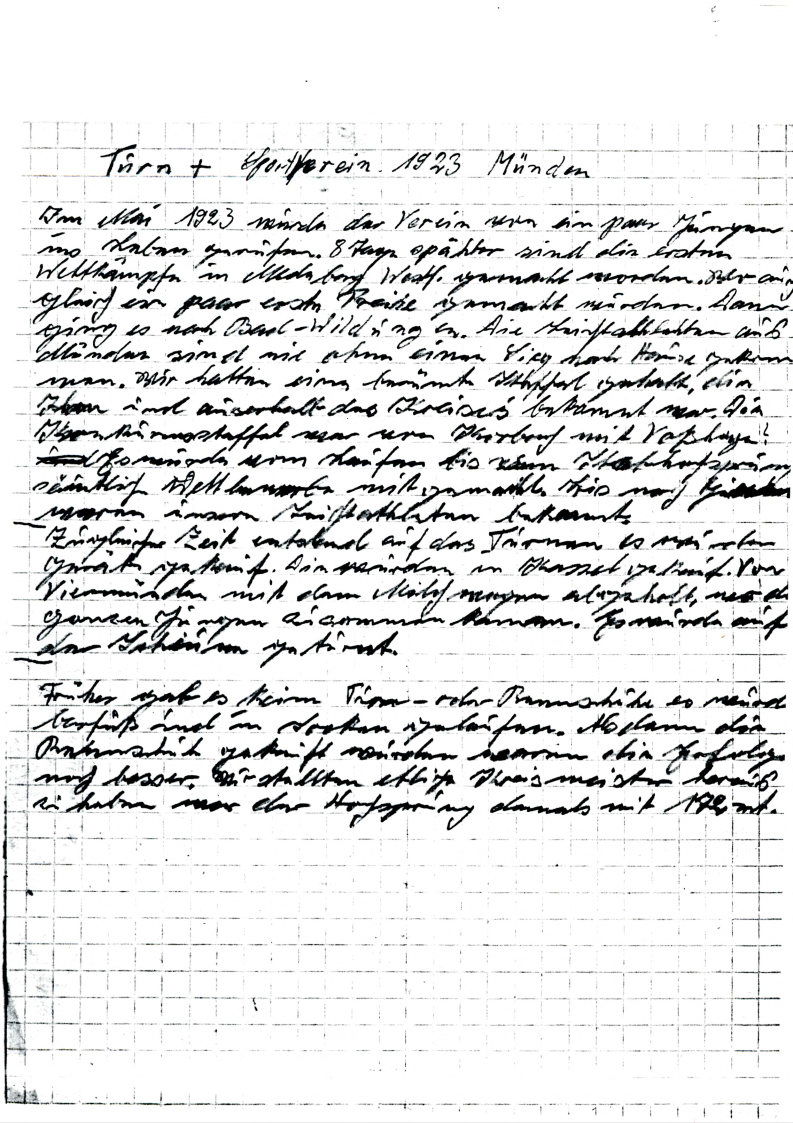 Turn + Sportverein 1923 Münden
Im Mai 1923 wurde der Verein von ein paar Jungen
ins Leben gerufen. 8 Tage später sind die ersten
Wettkämpfe in Medebach Westf. gemacht worden. Wo auch
gleich ein paar erste Preise gemacht wurden. Dann
ging es nach Bad-Wildungen. Die Leichtathleten aus
Münden sind nie ohne einen Sieg nach Hause gekom
men. Wir hatten eine berümte Staffel gehabt, die
und auserhalb des Kreises bekannt war. Die
war von Korbach mit
Es wurde vom Laufen bis zum Stabhochsprung
sämtlich Wettbewerbe mitgemacht. Bis nach
waren unsere Leichtathleten bekannt.
Zugleicher Zeit entstand auf das Turnen es wurden
Geräte gekauf. Die wurden in Kassel gekauf. Von
Viermünden mit dem Milch wagen abgeholt, wo die
ganzen Jungen zusammen kamen. Es wurde auf
der Scheune geturnt.
Früher gab es keine Turn- oder Rennschuhe es wurde
barfuß und in Socken gelaufen. Als dann die
Rennschuh gekauft wurden waren die Erfolge
noch besser. Wir stellten etliche Kreismeister heraus
zu haben war der Hochsprung damals mit 172 mt.